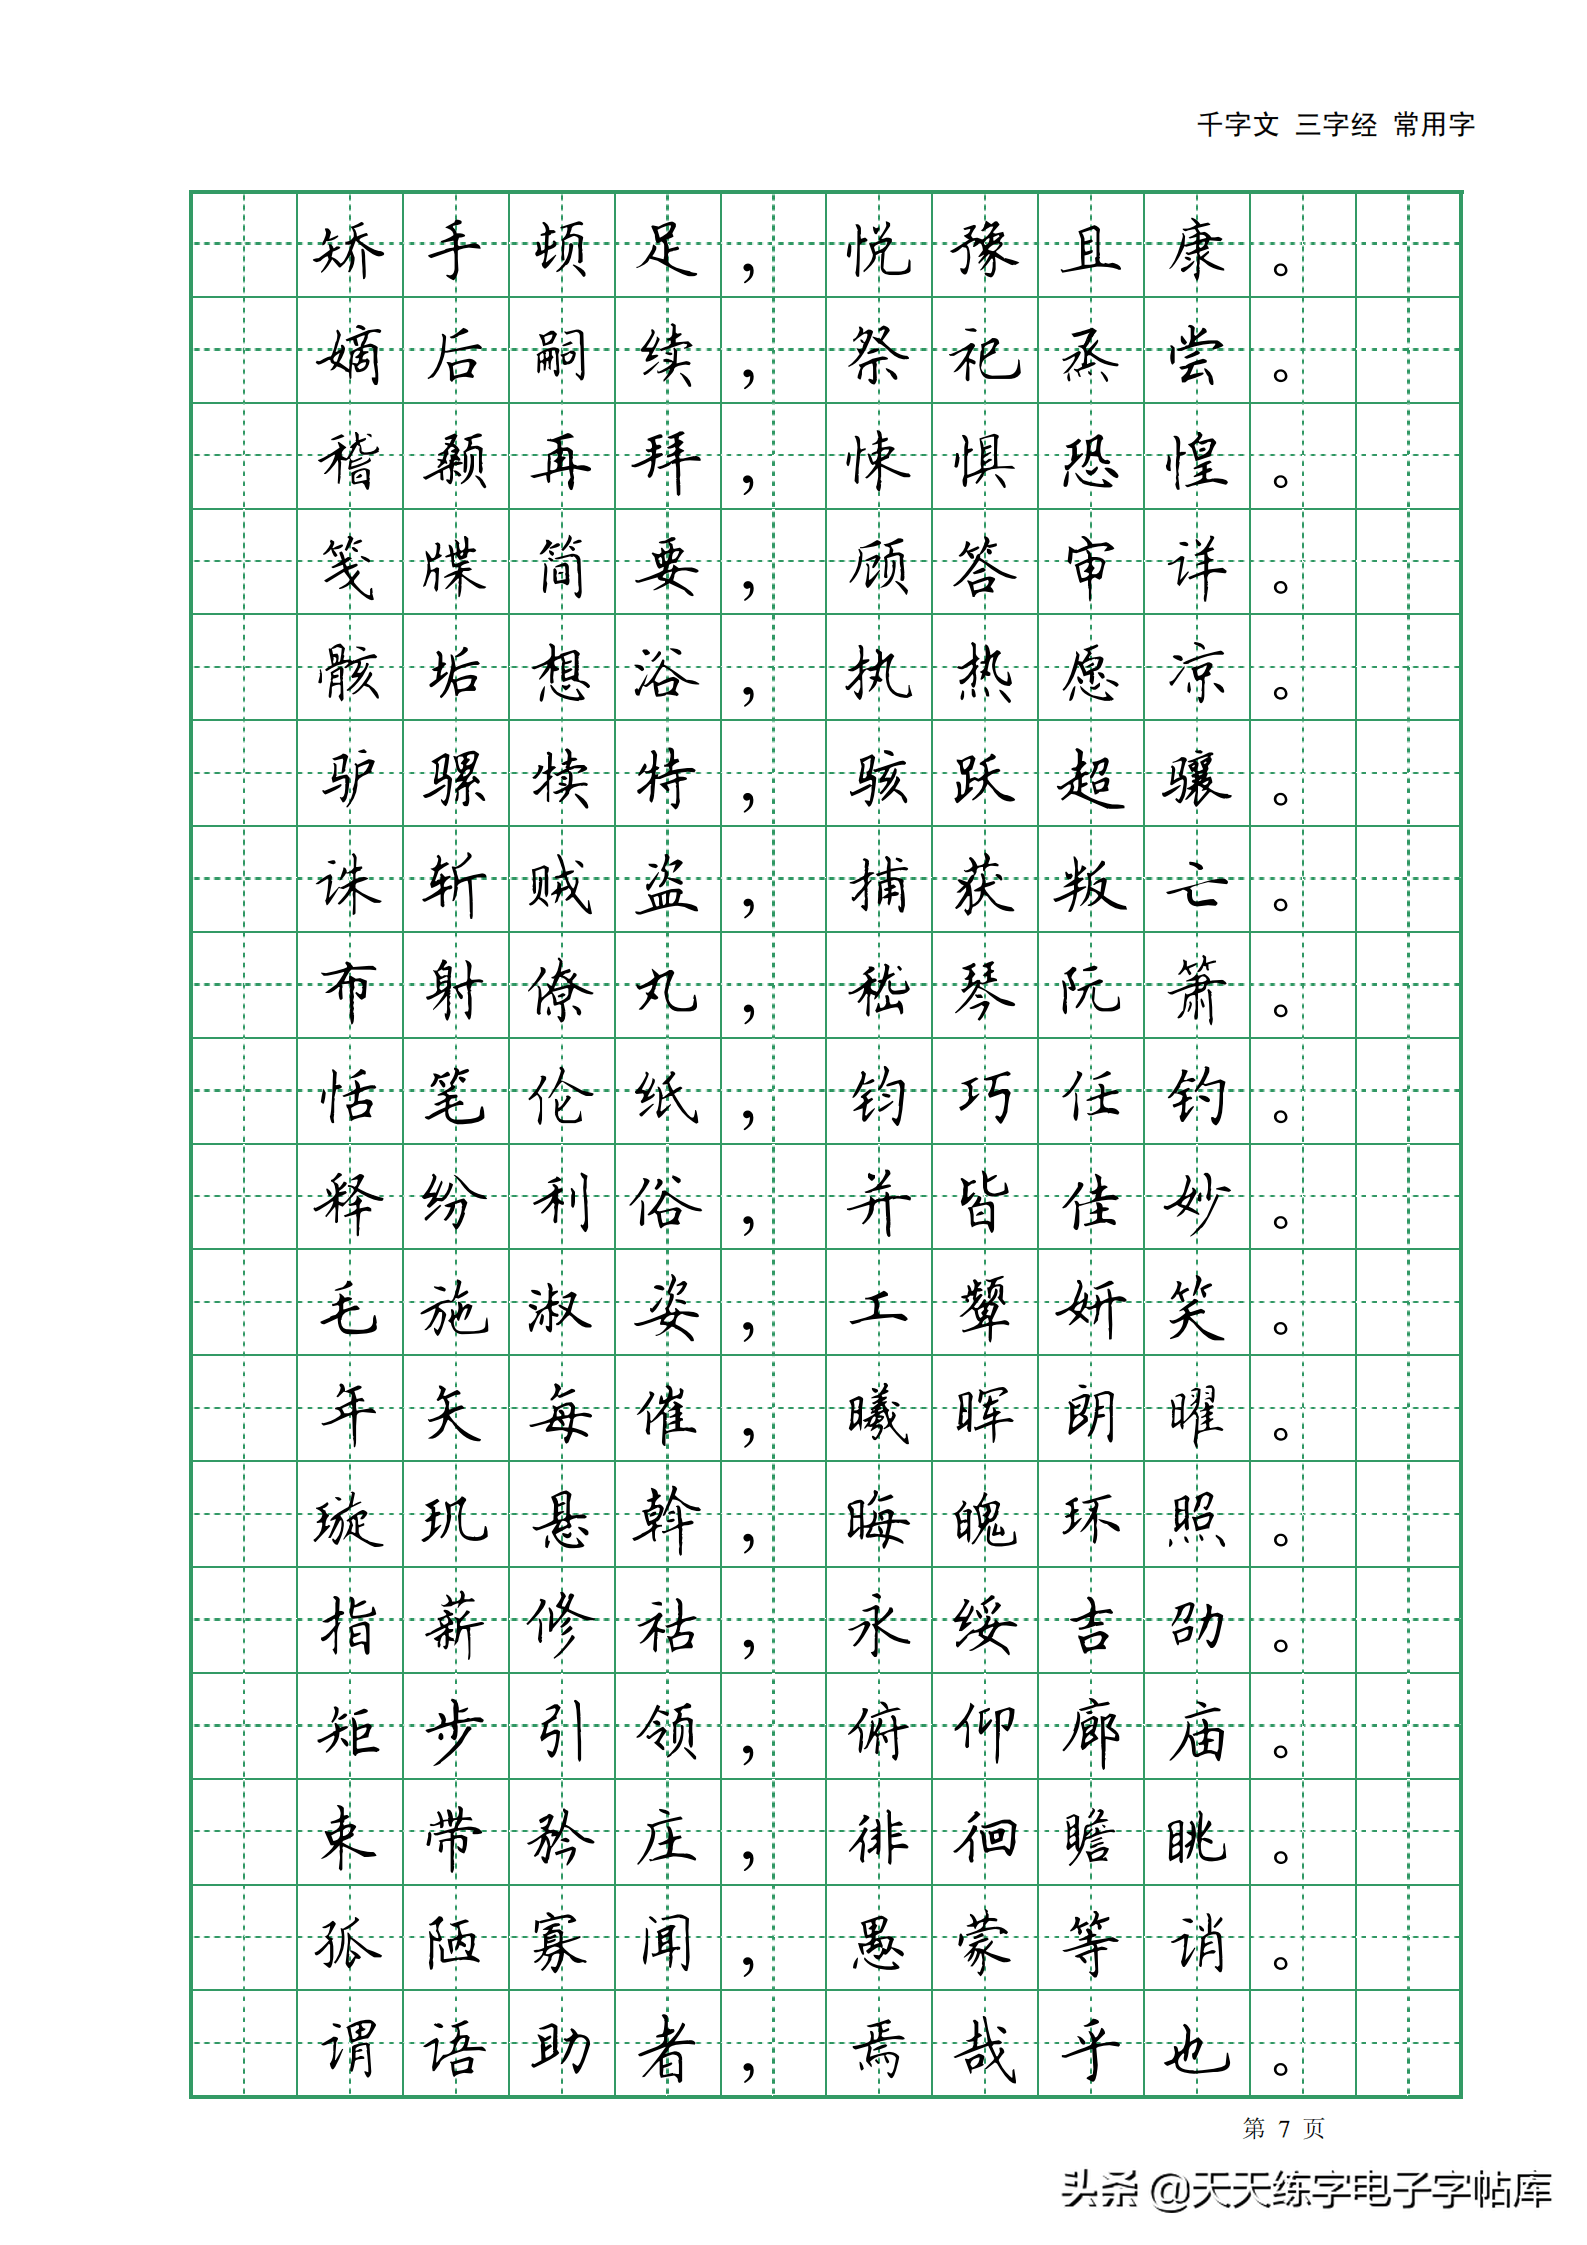 千字文 三字经 常用字
矫手顿足，悦豫且康。
嫡后嗣续，祭祀烝尝。
稽颡再拜，悚惧恐惶。
笺牒简要，顾答审详。
骸垢想浴，执热愿凉。
驴骡犊特，骇跃超骧。
诛斩贼盗，捕获叛亡。
布射僚丸，嵇琴阮箫。
恬笔伦纸，钧巧任钓。
释纷利俗，并皆佳妙。
毛施淑姿，工颦妍笑。
年矢每催，曦晖朗曜。
璇玑悬斡，晦魄环照。
指薪修祜，永绥吉劭。
矩步引领，俯仰廊庙。
束带矜庄，徘徊瞻眺。
孤陋寡闻，愚蒙等诮。
谓语助者，焉哉乎也。
第 7 页
头条 @天天练字电子字帖库